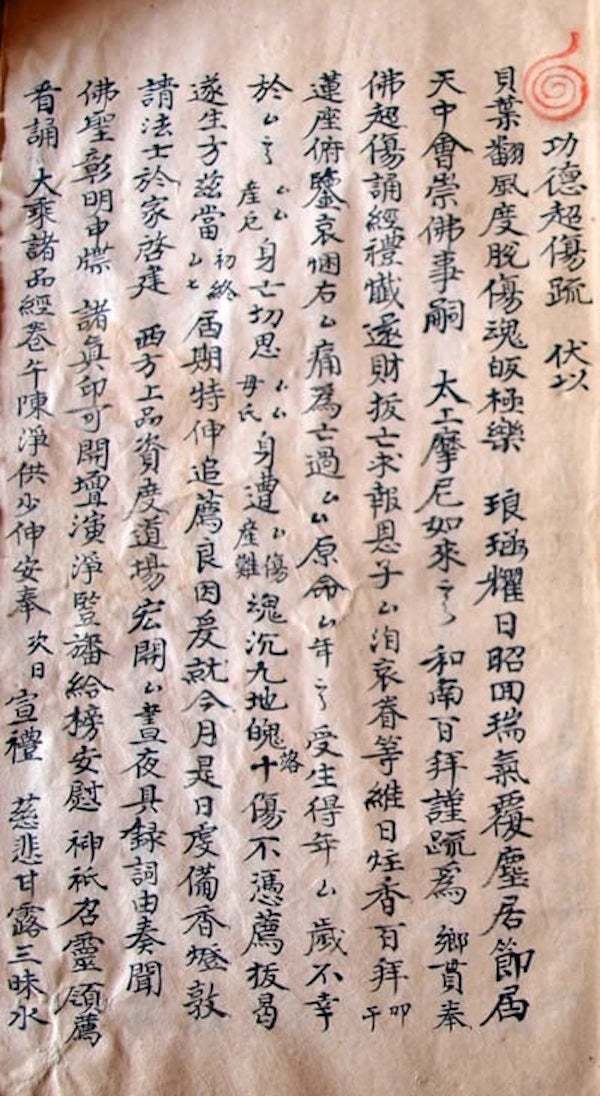 功德超傷疏　伏以
貝葉翻風度脫傷魂皈極樂　琅函耀日昭回瑞氣覆塵居節届
天中會崇佛事嗣　太上摩尼如來之　和南百拜謹疏為　鄉貫奉
佛超傷誦經禮懺還財拔亡求報恩子厶洎哀眷等維日炷香百拜　叩干
蓮座俯鑒哀悃右厶痛為亡過厶厶原命厶年之受生得年厶歲不幸
於厶之　厶厶產厄　身亡切思　厶厶母氏　身遭　厶傷產難　魂沉九地魄落十傷不憑薦拔曷
遂生方茲當　初終厶七　届期特伸追薦良因爰就今月是日虔備香燈敦
請法士於家啓建　西方上品資度道場宏開厶晝夜具録詞由奏聞
佛聖彰明申牒　諸真印可開壇演淨豎旛給榜安慰　神祇召靈領薦
看誦　大乘諸品經卷午陳淨供少伸安奉　次日　宣禮　慈悲甘露三昧水